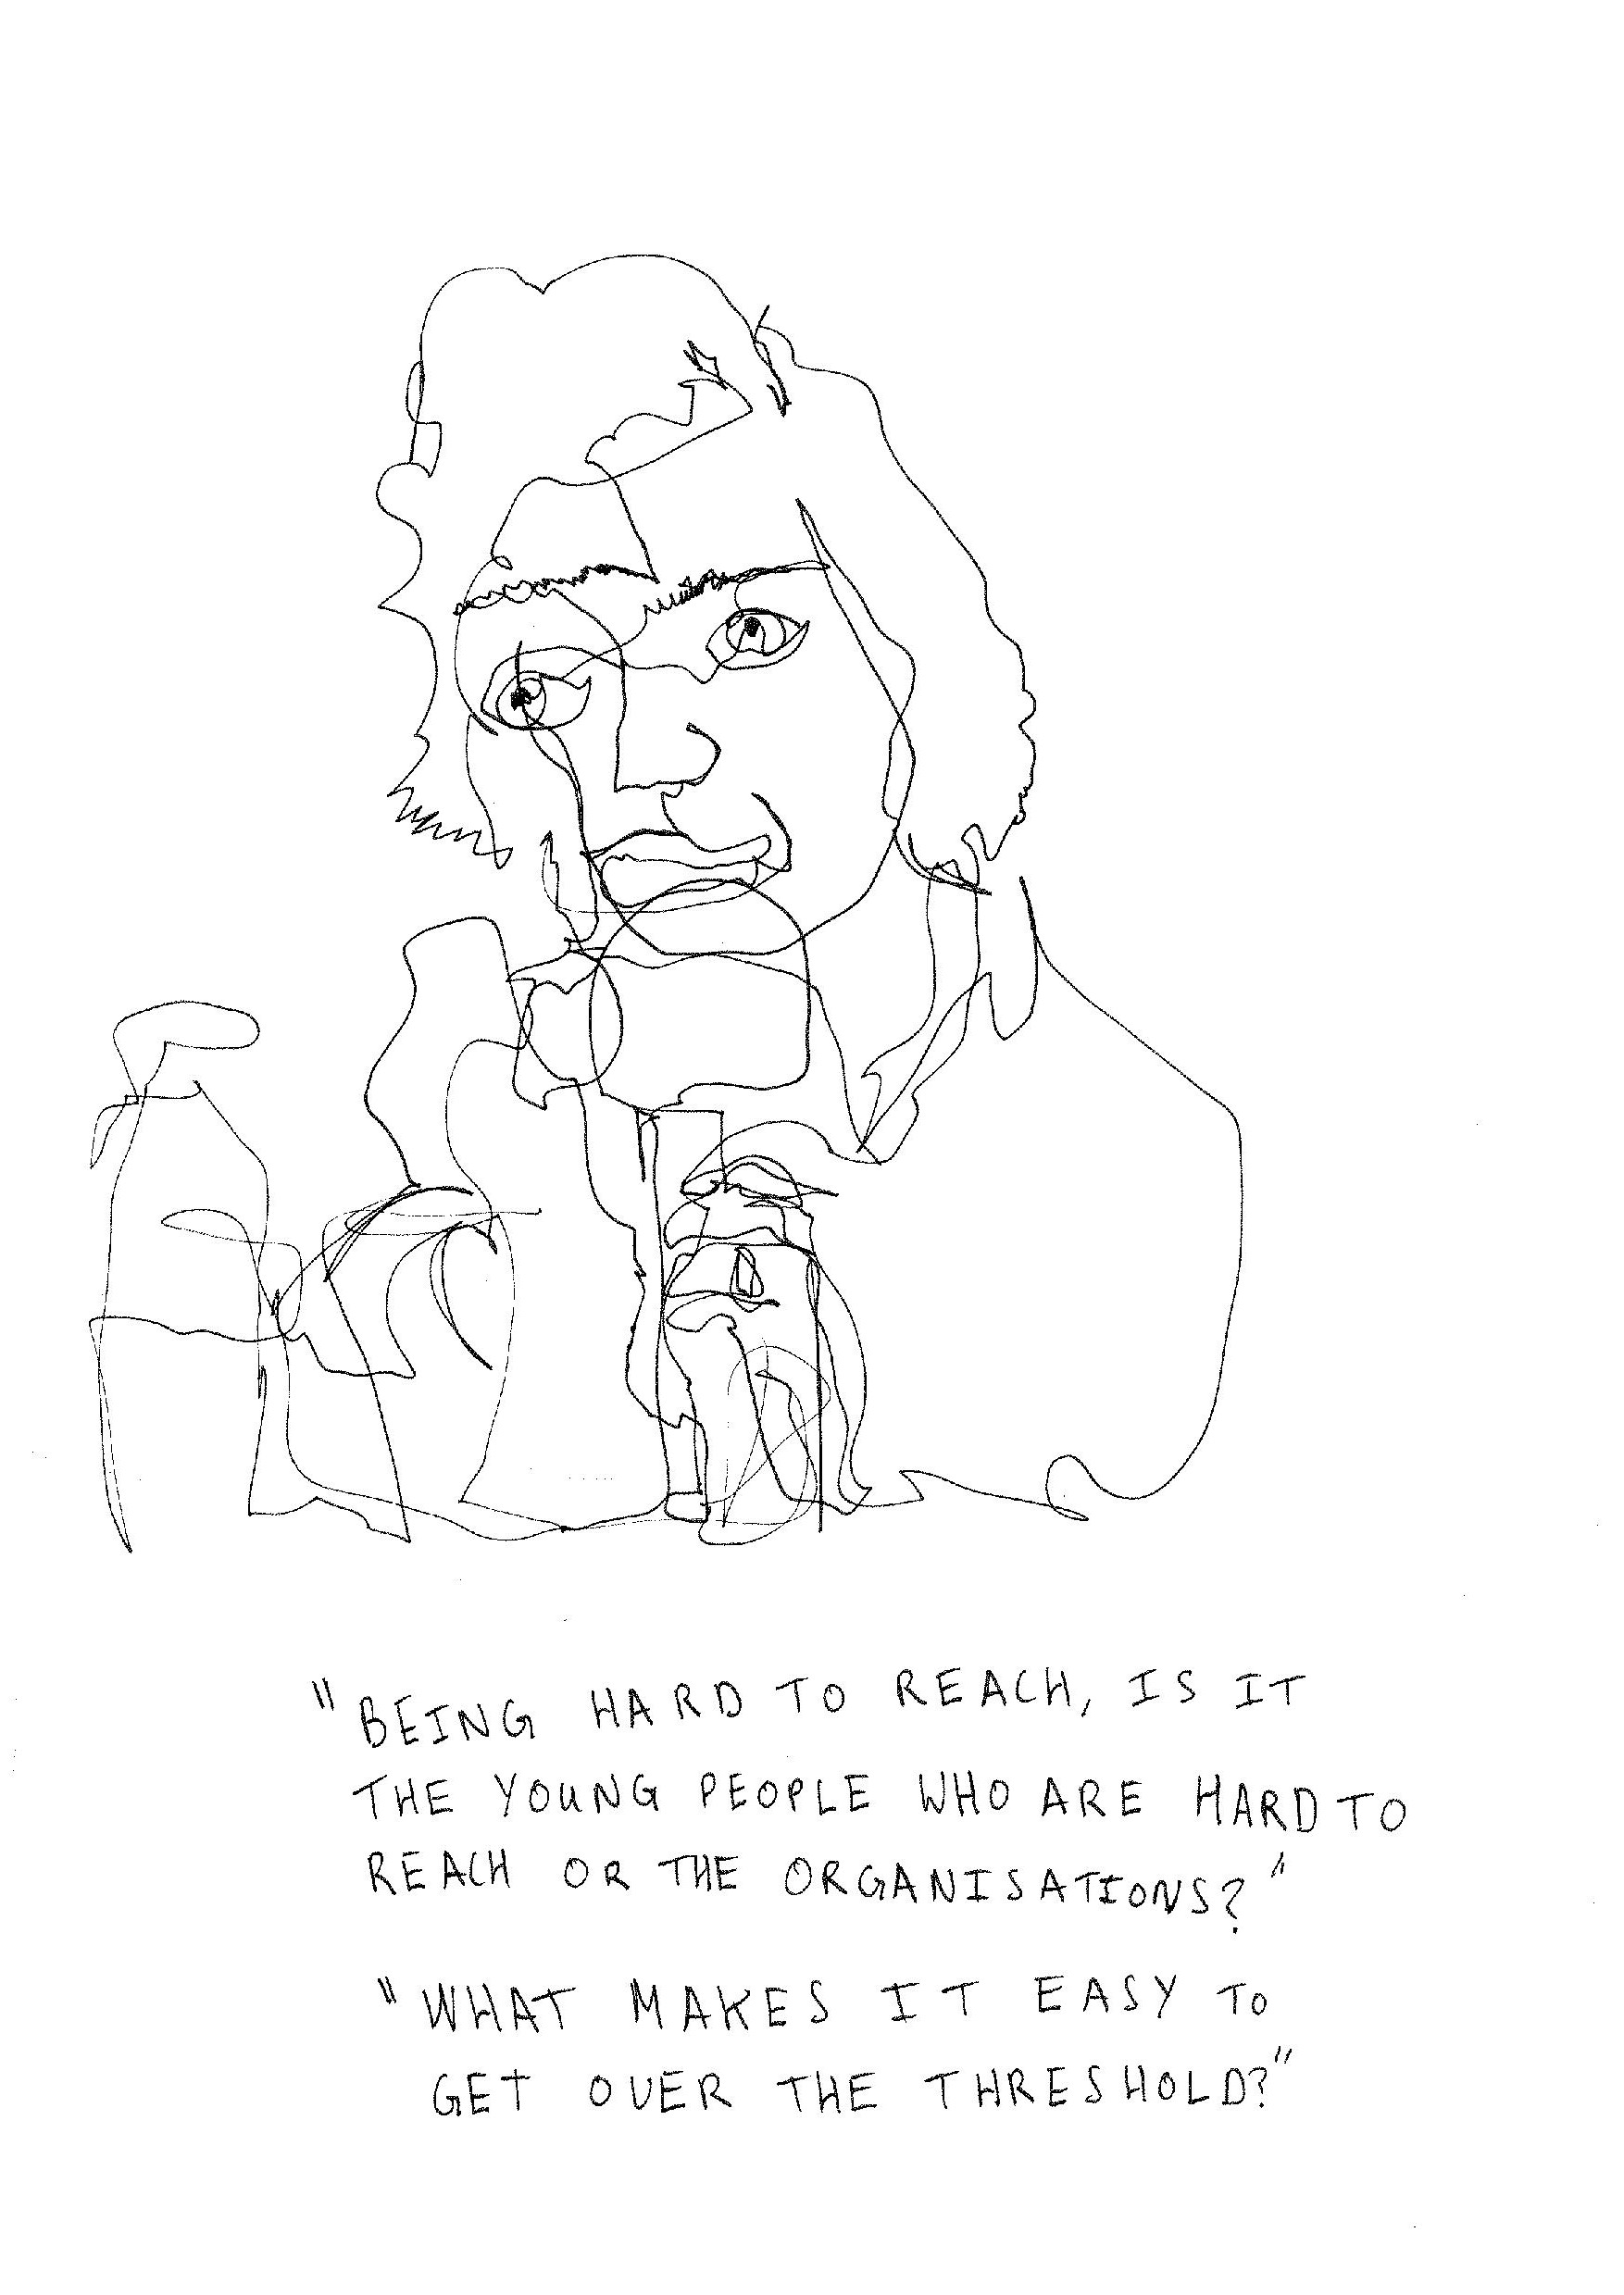 "BEING HARD TO REACH, IS IT
THE YOUNG PEOPLE WHO ARE HARD TO
REACH OR THE ORGANISATIONS?"
"WHAT MAKES IT EASY TO
GET OVER THE THRESHOLD?"